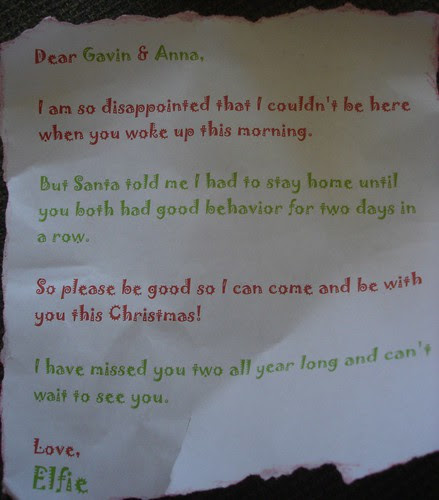 Dear Gavin & Anna,
I am so disappointed that I couldn't be here
when you woke up this morning.
But Santa told me I had to stay home until
you both had good behavior for two days in
a row.
So please be good so I can come and be with
you this Christmas!
I have missed you two all year long and can't
wait to see you.
Love,
Elfie